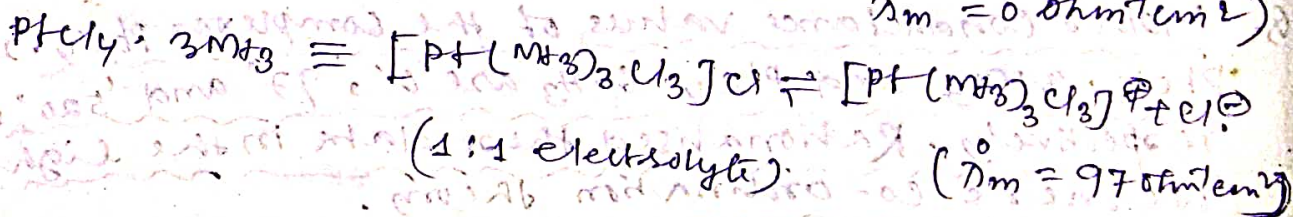 Λm = 0 ohm⁻¹cm²)
PtCl4·3NH3 ≡ [Pt(NH3)3Cl3]Cl ⇌ [Pt(NH3)3Cl3]⊕ + Cl⊖
(1:1 electrolyte). (Λ°m = 97 ohm⁻¹cm²)